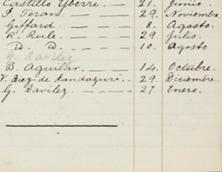 Castillo Yberri — 21. Junio.
F. Teran — — — 29. Noviembre.
Giffard — — — 8. Agosto.
R. Rule — — — 29. Julio.
D. D. — — — 10. Agosto
G. Davilez
B. Aguilar — — 14. Octubre.
V. Biez de Landazuri — 29. Diciembre.
G. Davilez — — — 27. Enero.